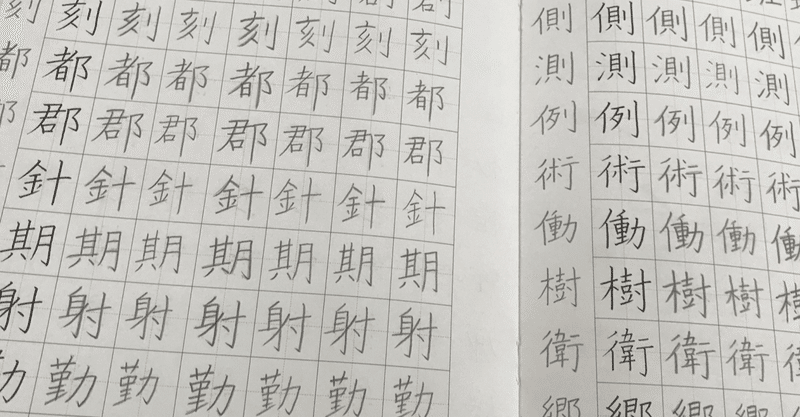 刻刻刻刻刻刻刻
都都都都都都都都
郡郡郡郡郡郡郡
針針針針針針針
期期期期期期期
射射射射射射射
勤勤勤勤勤勤
側側側側側
測測測測測
例例例例例
術術術術術
働働働働働
樹樹樹樹樹
衛衛衛衛
郷郷郷郷